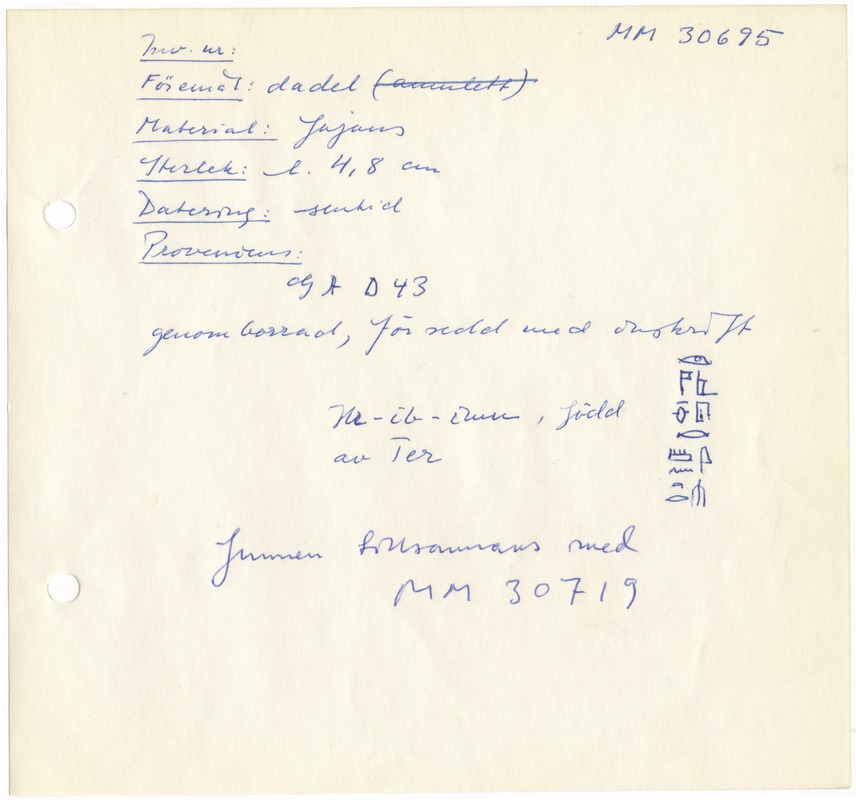 MM 30695
Inv. nr:
Föremål: dadel (amulett)
Material: fajans
Storlek: l. 4,8 cm
Datering: sentid
Proveniens:
D 43
genomborrad, försedd med inskrift
, född
av Ter
funnen tillsammans med
MM 30719